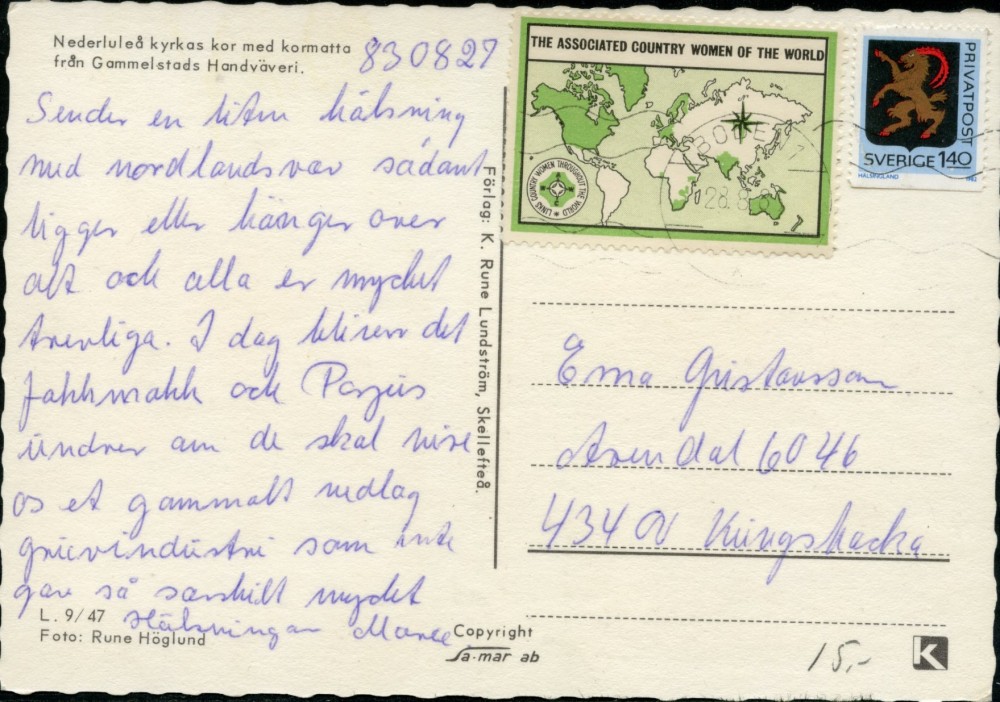 Nederluleå kyrkas kor med kormatta
från Gammelstads Handväveri.
830827
Sender en liten hälsning
med nordlandsvar sådant
ligger eller hänger over
alt och alla er mycket
trevliga. I dag bliver det
Jakkmakk och Porjus
undrer om de skal vise
os et gammalt nedlag
gruvindustri som inte
gav så sarskilt mycket
Hälsningar
L. 9/47
Foto: Rune Höglund
Förlag: K. Rune Lundström, Skellefteå.
Copyright
Sa-mar ab
THE ASSOCIATED COUNTRY WOMEN OF THE WORLD
LINKS COUNTRY WOMEN THROUGHOUT THE WORLD
PRIVATPOST
SVERIGE 140
HÄLSINGLAND
1982
BODEN
28.8.8
Erna Gustavsson
Arendal 6046
434 00 Kungsbacka
15,-
K